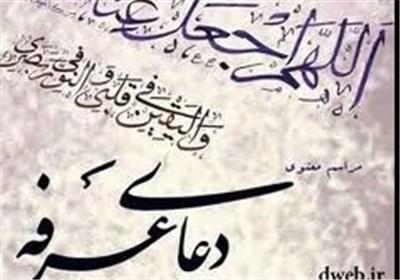 اللهم اجعل غنای
والیقین فی قلبی والنور فی بصری
مراسم معنوی
دعای عرفه
dweb.ir